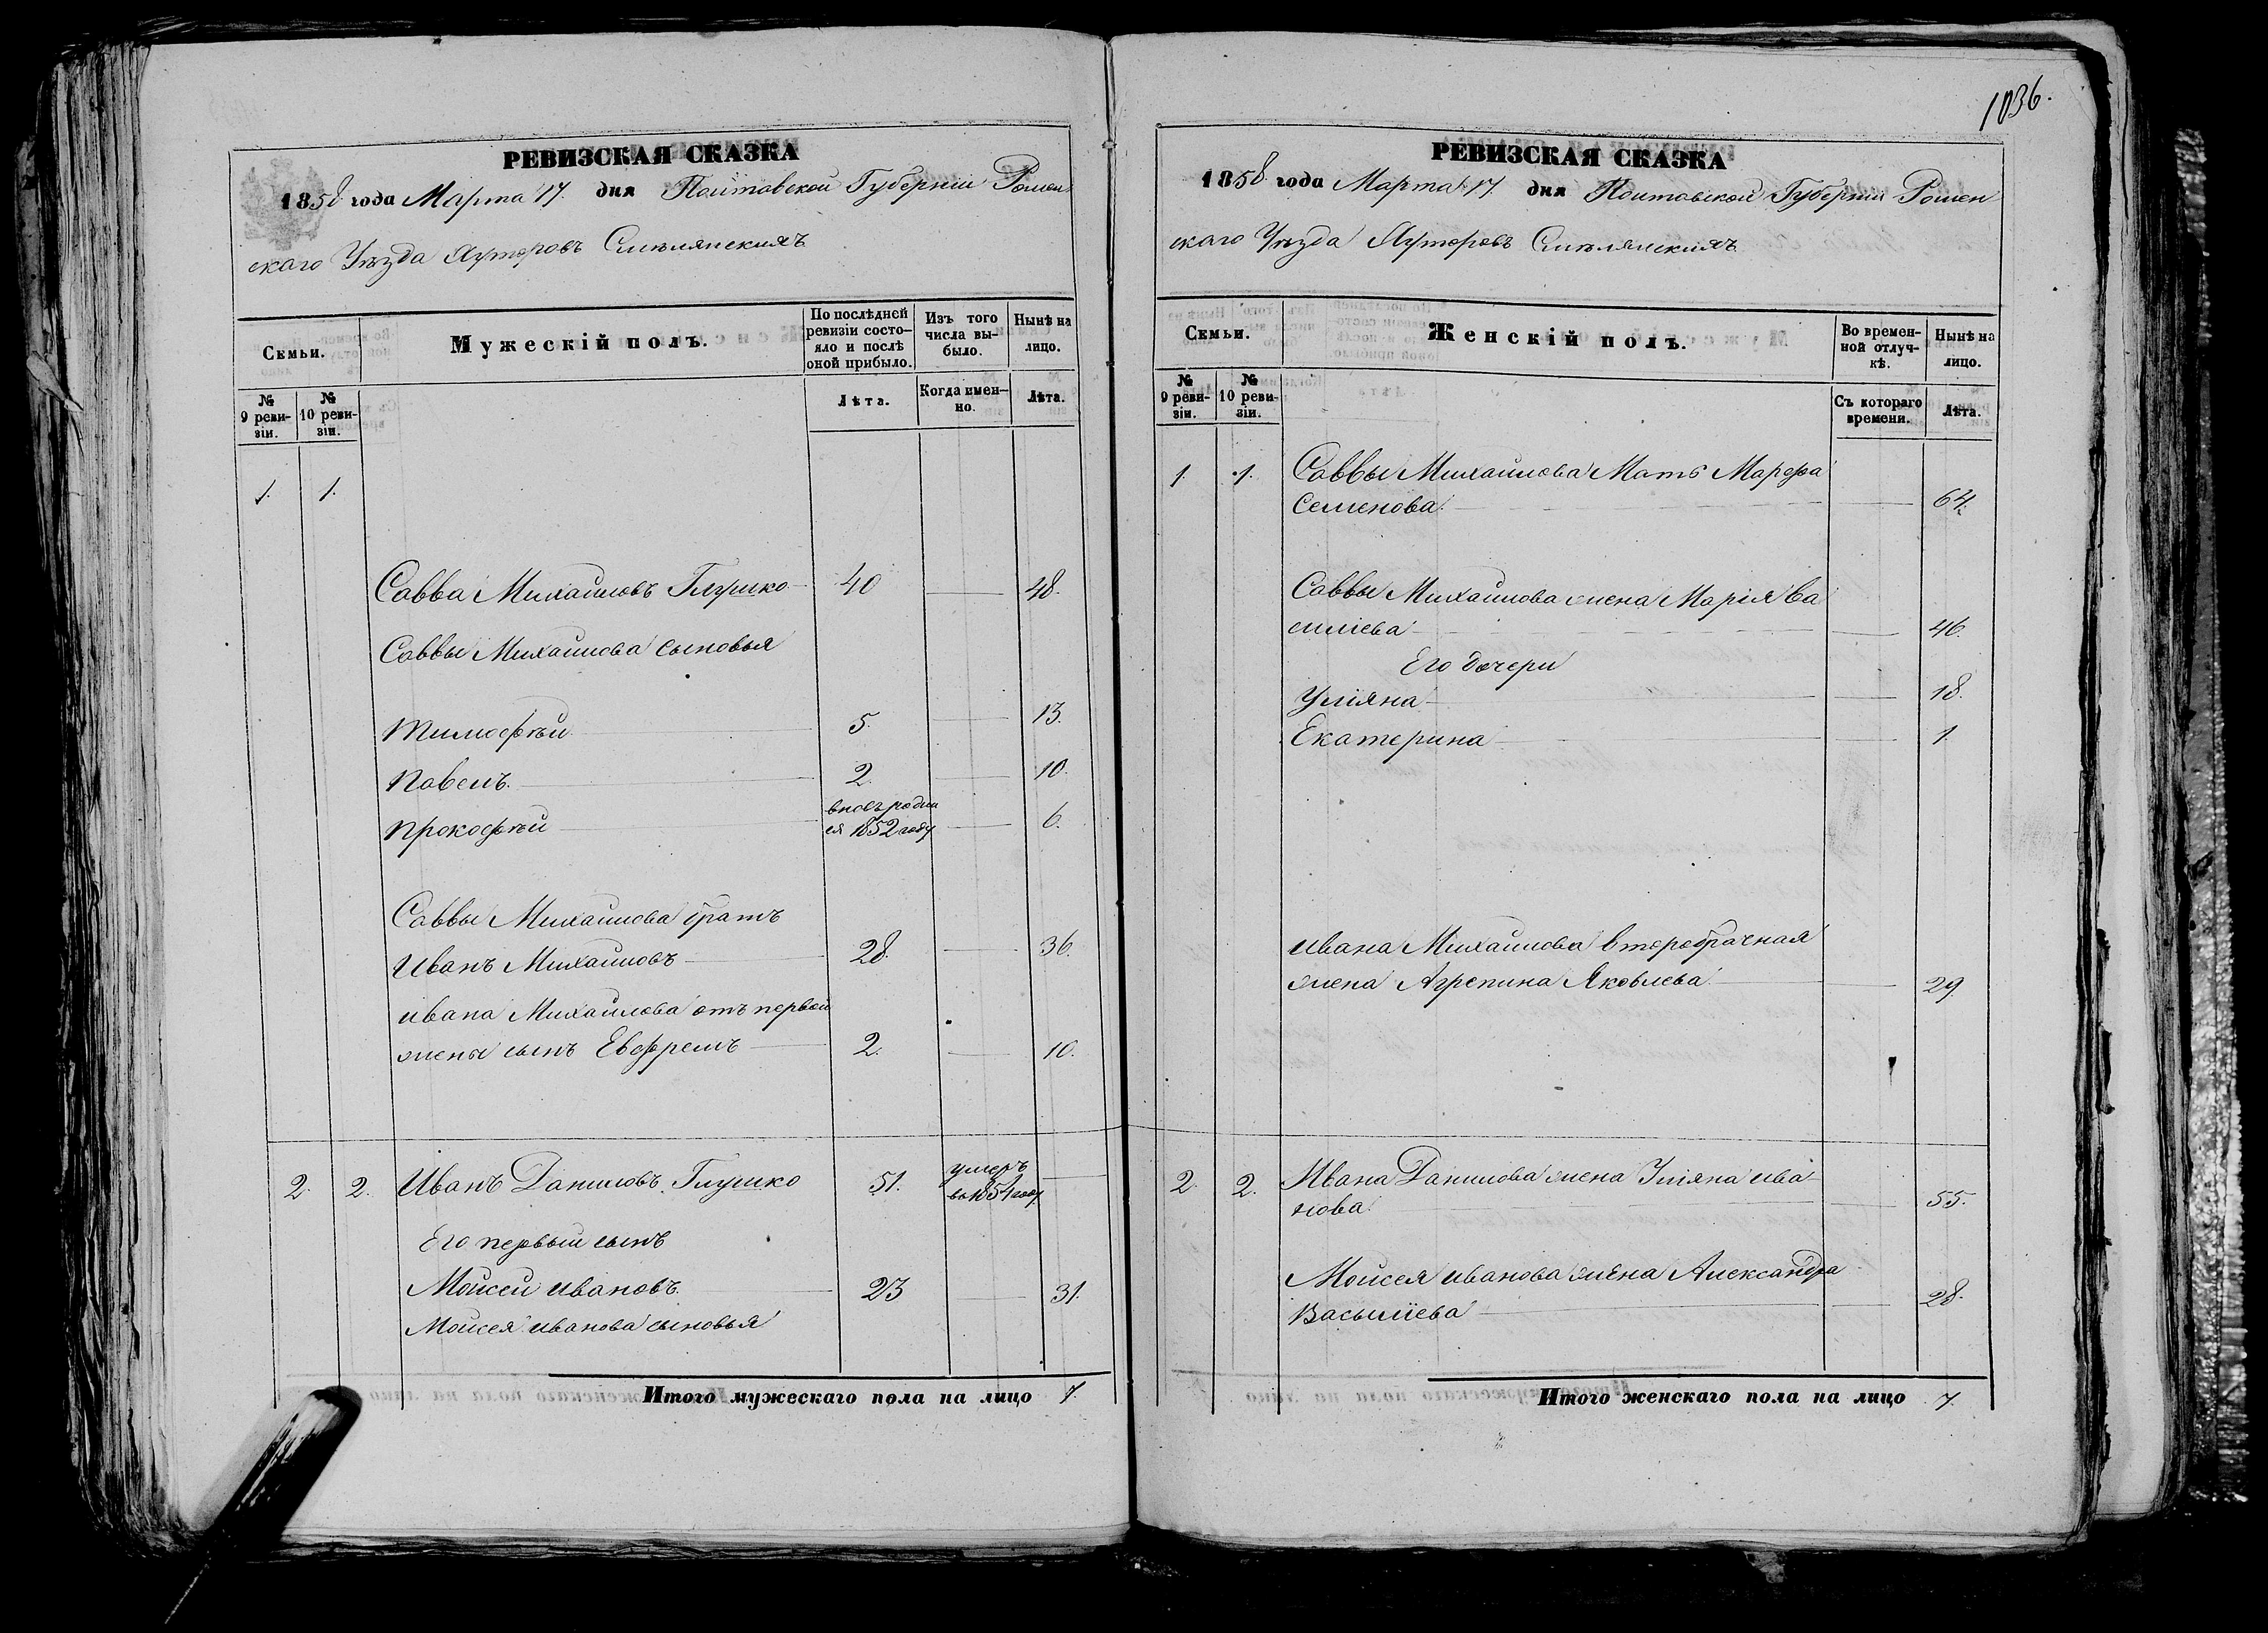 1036.
РЕВИЗСКАЯ СКАЗКА
1858 года Марта 17. дня Полтавской Губерніи Ромен
скаго Уѣзда Хуторовъ Смѣлянскихъ
Семьи.
Мужескій полъ.
По послѣдней ревизіи состо-
яло и послѣ оной прибыло.
Изъ того числа вы-
было.
Нынѣ на лицо.
№ 9 реви-
зіи.
№ 10 реви-
зіи.
Лѣта.
Когда имен-
но.
Лѣта.
1. 1.
Савва Михайловъ Глушко 40 48.
Саввы Михайлова сыновья
Тимофѣй 5. 13.
Павелъ 2. 10.
Прокофѣй вновь роди
ся 1852 году 6.
Саввы Михайлова братъ
Иванъ Михайловъ 28. 36.
Ивана Михайлова отъ первой
жены сынъ Евфремъ 2. 10.
2. 2. Иванъ Даниловъ Глушко 51. умеръ
в 1854 году
Его первый сынъ
Мойсей Ивановъ 23 31.
Мойсея Иванова сыновья
Итого мужескаго пола на лицо 7.
РЕВИЗСКАЯ СКАЗКА
1858 года Марта 17. дня Полтавской Губерніи Ромен
скаго Уѣзда Хуторовъ Смѣлянскихъ
Семьи.
Женскій полъ.
Во времен-
ной отлуч-
кѣ.
Нынѣ на лицо.
№ 9 реви-
зіи.
№ 10 реви-
зіи.
Съ котораго времени.
Лѣта.
1. 1. Саввы Михайлова Мать Марфа
Семенова 64.
Саввы Михайлова жена Марія Ва
силіева 46.
Его дочери
Уліяна 18.
Екатерина 1
Ивана Михайлова второбрачная
жена Агрепина Яковлева 29.
2. 2. Ивана Данилова жена Уліяна Ива
нова 55.
Мойсея Иванова жена Александра
Васыліева 28.
Итого женскаго пола на лицо 7.